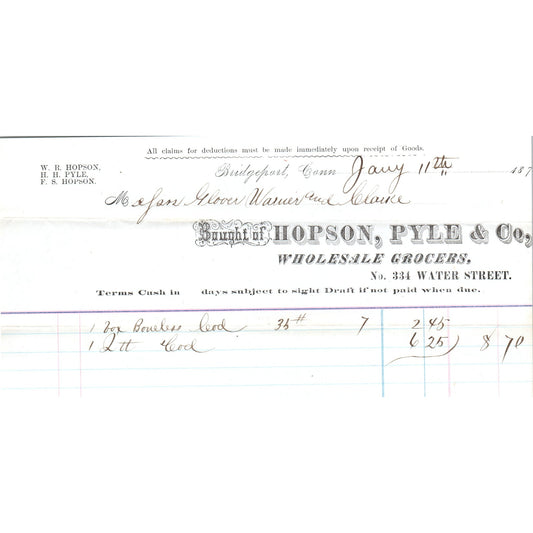 All claims for deductions must be made immediately upon receipt of Goods.
W. R. HOPSON,
H. H. PYLE,
F. S. HOPSON.
Bridgeport, Conn Jany 11th 187
Glover Warner and Clarke
Bought of HOPSON, PYLE & Co,
WHOLESALE GROCERS,
No. 334 WATER STREET.
Terms Cash in days subject to sight Draft if not paid when due.
1 box Boneless Cod 35# 7 2 45
1 Cod 6 25 8 70